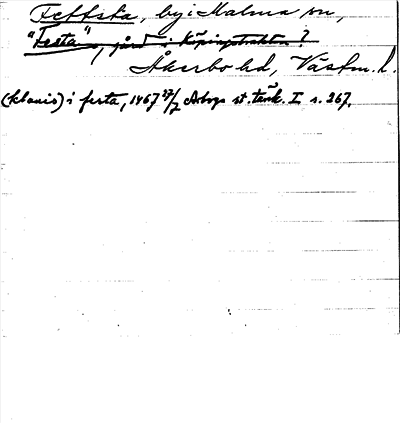 Feftsta, by i Malma sn,
"Festa", gård i Köpingstrakten?
Åkerbo hd, Västm. l.
(klauis) i festa, 1467 27/7 Arboga st. tänk. I s. 367.